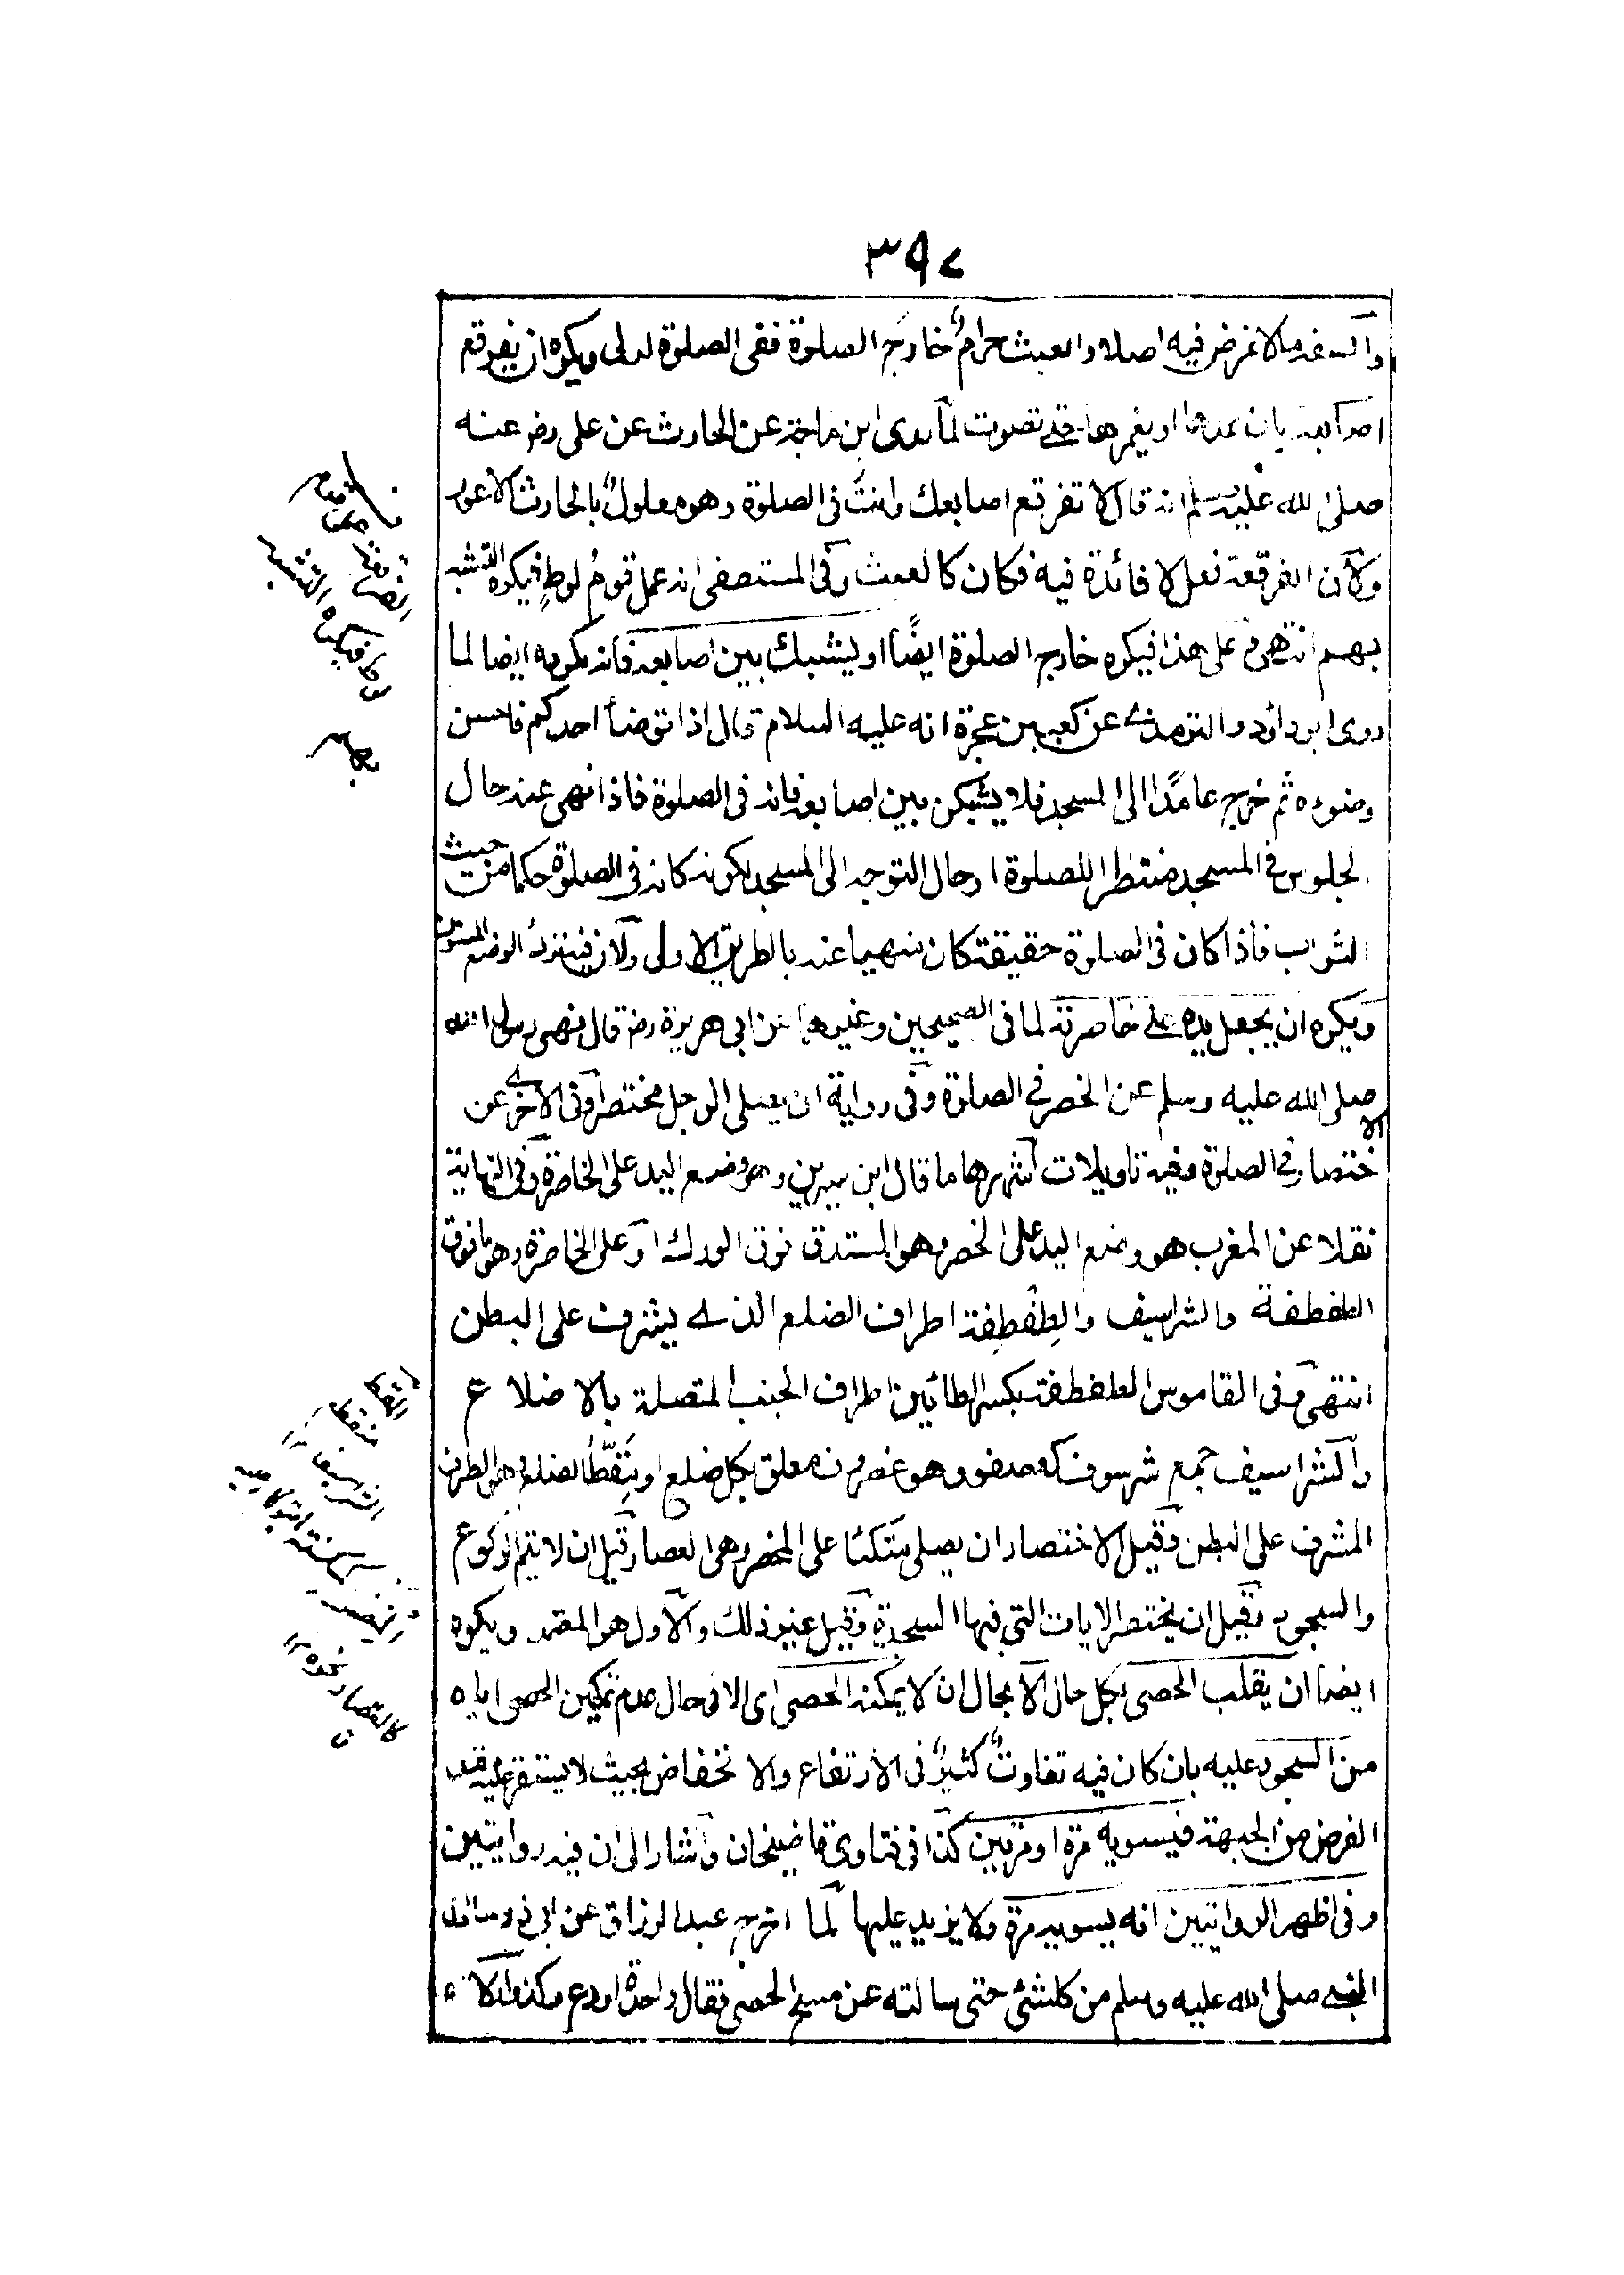 ٣٩٧
والسفه ما لا غرض فيه اصلا والعبث حرام خارج الصلوة ففى الصلوة اولى ويكره ان يفرقع
اصابعه بان يمدها او يغمزها حتى تصوت لما روى ابن ماجة عن الحارث عن على رض عنه
صلى الله عليه وسلم انه قال لا تفرقع اصابعك وانت فى الصلوة وهو معلول بالحارث الاعور
ولان الفرقعة فعل لا فائدة فيه فكان كالعبث وفى المستصفى انه عمل قوم لوط فيكره التشبه
بهم انتهى فعلى هذا فيكره خارج الصلوة ايضًا او يشبك بين اصابعه فانه يكره ايضا لما
روى ابوداؤد والترمذى عن كعب بن عجرة انه عليه السلام قال اذا توضأ احدكم فاحسن
وضوءه ثم خرج عامدًا الى المسجد فلا يشبكن بين اصابعه فانه فى الصلوة فاذا نهى عنه حال
الجلوس فى المسجد منتظرا للصلوة او حال التوجه الى المسجد لكونه كانه فى الصلوة حكما من حيث
الثواب فاذا كان فى الصلوة حقيقة كان منهيا عنه بالطريق الاولى ولان فيه ترك الوضع المسنون
ويكره ان يجعل يده على خاصرته لما فى الصحيحين وغيرهما عن ابى هريرة رض قال نهى رسول الله
صلى الله عليه وسلم عن الخصر فى الصلوة وفى رواية ان يصلى الرجل مختصرا وفى الاخرى عن
الاختصار فى الصلوة وفيه تاويلات اشهرها ما قال ابن سيرين وهو وضع اليد على الخاصرة وفى النهاية
نقلا عن المغرب هو وضع اليد على الخصر وهو المستدق فوق الورك او على الخاصرة وهو ما فوق
الطفطفة والشراسيف والطِفطِفة اطراف الضلع الذى يشرف على البطن
انتهى وفى القاموس الطفطفة بكسر الطائين اطراف الجنب المتصلة بالاضلاع
والشراسيف جمع شرسوف كعصفور وهو غضروف معلق بكل ضلع او مَقَطُّ الضلع وهو الطرف
المشرف على البطن وقيل الاختصار ان يصلى متكئا على المخصرة وهى العصا وقيل ان لا يتم الركوع
والسجود وقيل ان يختصر الايات التى فيها السجدة وقيل غير ذلك والاول هو المعتمد ويكره
ايضا ان يقلب الحصى بكل حال الا بحال ان لا يمكنه الحصى اى الا فى حال عدم تمكين الحصى اياه
من السجود عليه بان كان فيه تفاوت كثير فى الارتفاع والانخفاض بحيث لا يستقر عليه قدر
الفرض من الجبهة فيسويه مرة او مرتين كذا فى فتاوى قاضيخان واشار الى ان فيه روايتين
وفى اظهر الروايتين انه يسويه مرة ولا يزيد عليها لما اخرج عبد الرزاق عن ابى ذر سالت
النبى صلى الله عليه وسلم من كل شئ حتى سالته عن مسح الحصى فقال واحدة او دع وكذا